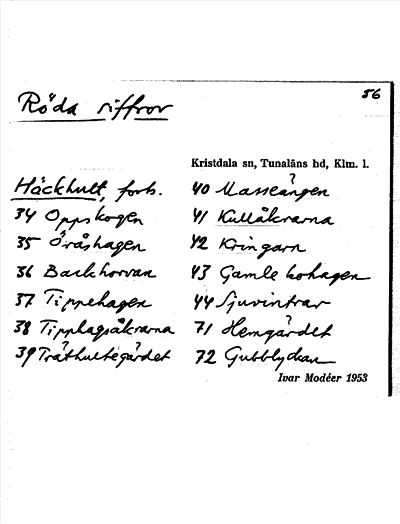 56
Röda siffror
Kristdala sn, Tunaläns hd, Klm. l.
Häckhult, forts.
34 Oppskogen
35 Öråshagen
36 Backhorvan
37 Tippehagen
38 Tipphagsåkrarna
39 Tråthultegärdet
?
40 Masseängen
41 Kullåkrarna
42 Kringarn
43 Gamle kohagen
44 Sjuvintrar
?
71 Hemgärdet
72 Gubblyckan
Ivar Modéer 1953